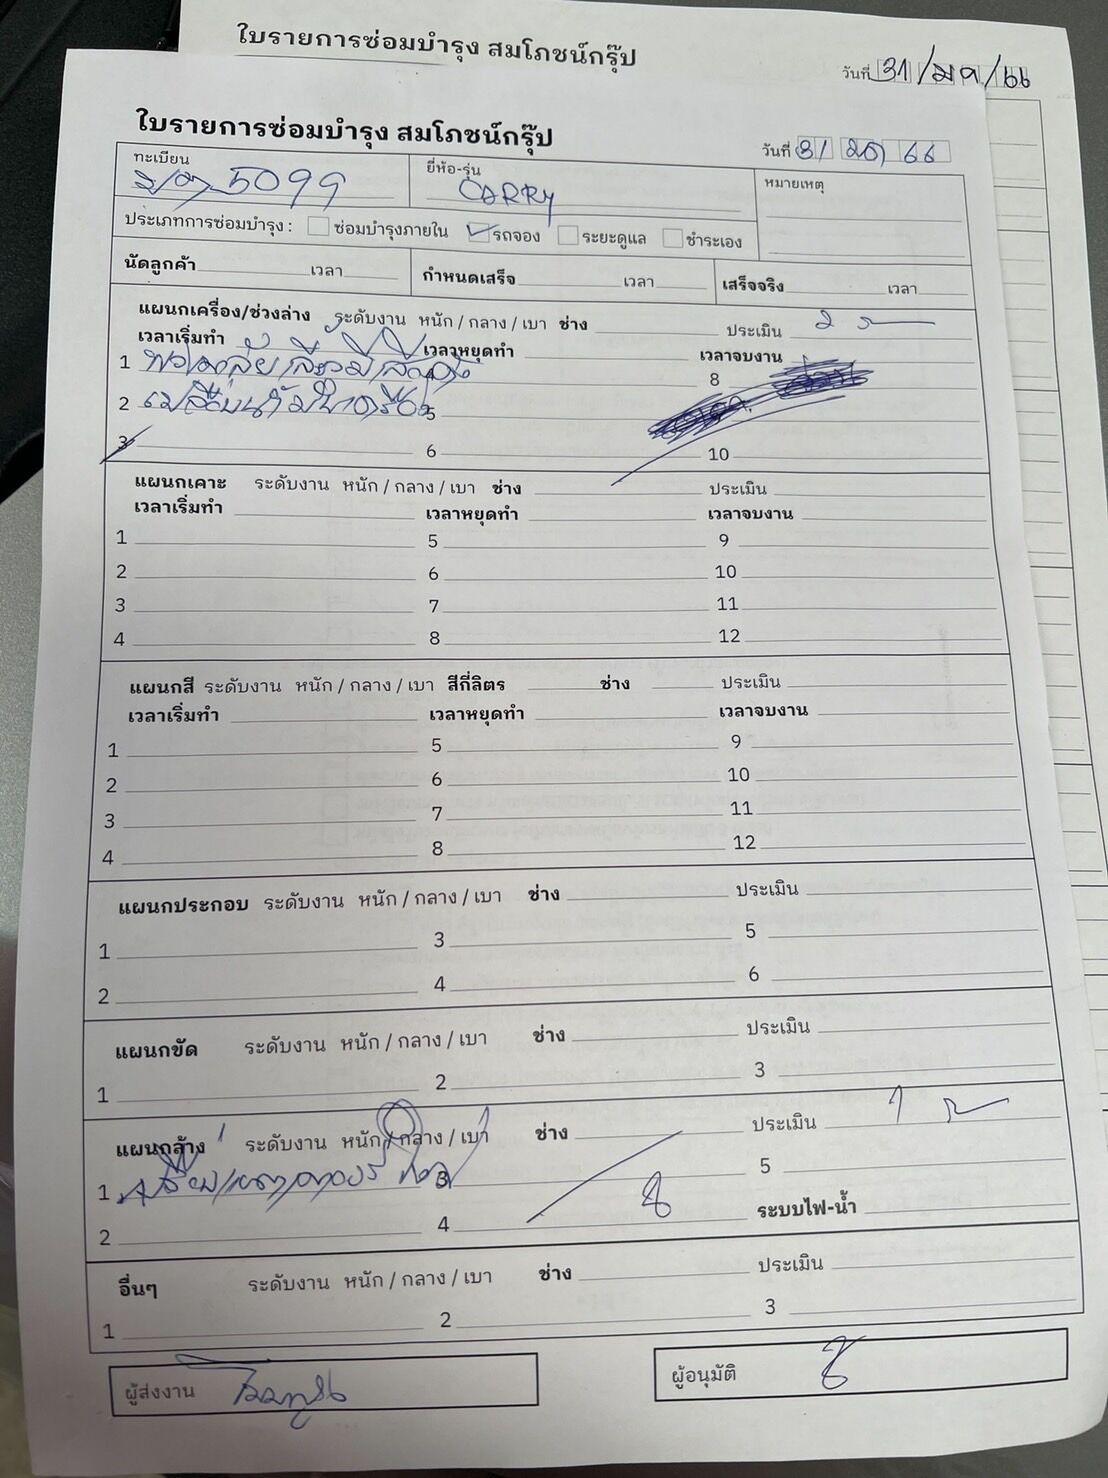 ใบรายการซ่อมบำรุง สมโภชน์กรุ๊ป
วันที่ 31/มค/66
ใบรายการซ่อมบำรุง สมโภชน์กรุ๊ป
วันที่ 31 มค 66
ทะเบียน 5099
ยี่ห้อ-รุ่น CARRY
หมายเหตุ
ประเภทการซ่อมบำรุง : ซ่อมบำรุงภายใน รถจอง ระยะดูแล ชำระเอง
นัดลูกค้า เวลา กำหนดเสร็จ เวลา เสร็จจริง เวลา
แผนกเครื่อง/ช่วงล่าง ระดับงาน หนัก / กลาง / เบา ช่าง ประเมิน 2
เวลาเริ่มทำ เวลาหยุดทำ เวลาจบงาน
1 8
2 เปลี่ยนน้ำมันเครื่อง 5
3 6 10
แผนกเคาะ ระดับงาน หนัก / กลาง / เบา ช่าง ประเมิน
เวลาเริ่มทำ เวลาหยุดทำ เวลาจบงาน
1 5 9
2 6 10
3 7 11
4 8 12
แผนกสี ระดับงาน หนัก / กลาง / เบา สีกี่ลิตร ช่าง ประเมิน
เวลาเริ่มทำ เวลาหยุดทำ เวลาจบงาน
1 5 9
2 6 10
3 7 11
4 8 12
แผนกประกอบ ระดับงาน หนัก / กลาง / เบา ช่าง ประเมิน
1 3 5
2 4 6
แผนกขัด ระดับงาน หนัก / กลาง / เบา ช่าง ประเมิน
1 2 3
แผนกล้าง ระดับงาน หนัก / กลาง / เบา ช่าง ประเมิน 1
1 3 5
2 4 ระบบไฟ-น้ำ
อื่นๆ ระดับงาน หนัก / กลาง / เบา ช่าง ประเมิน
1 2 3
ผู้ส่งงาน
ผู้อนุมัติ